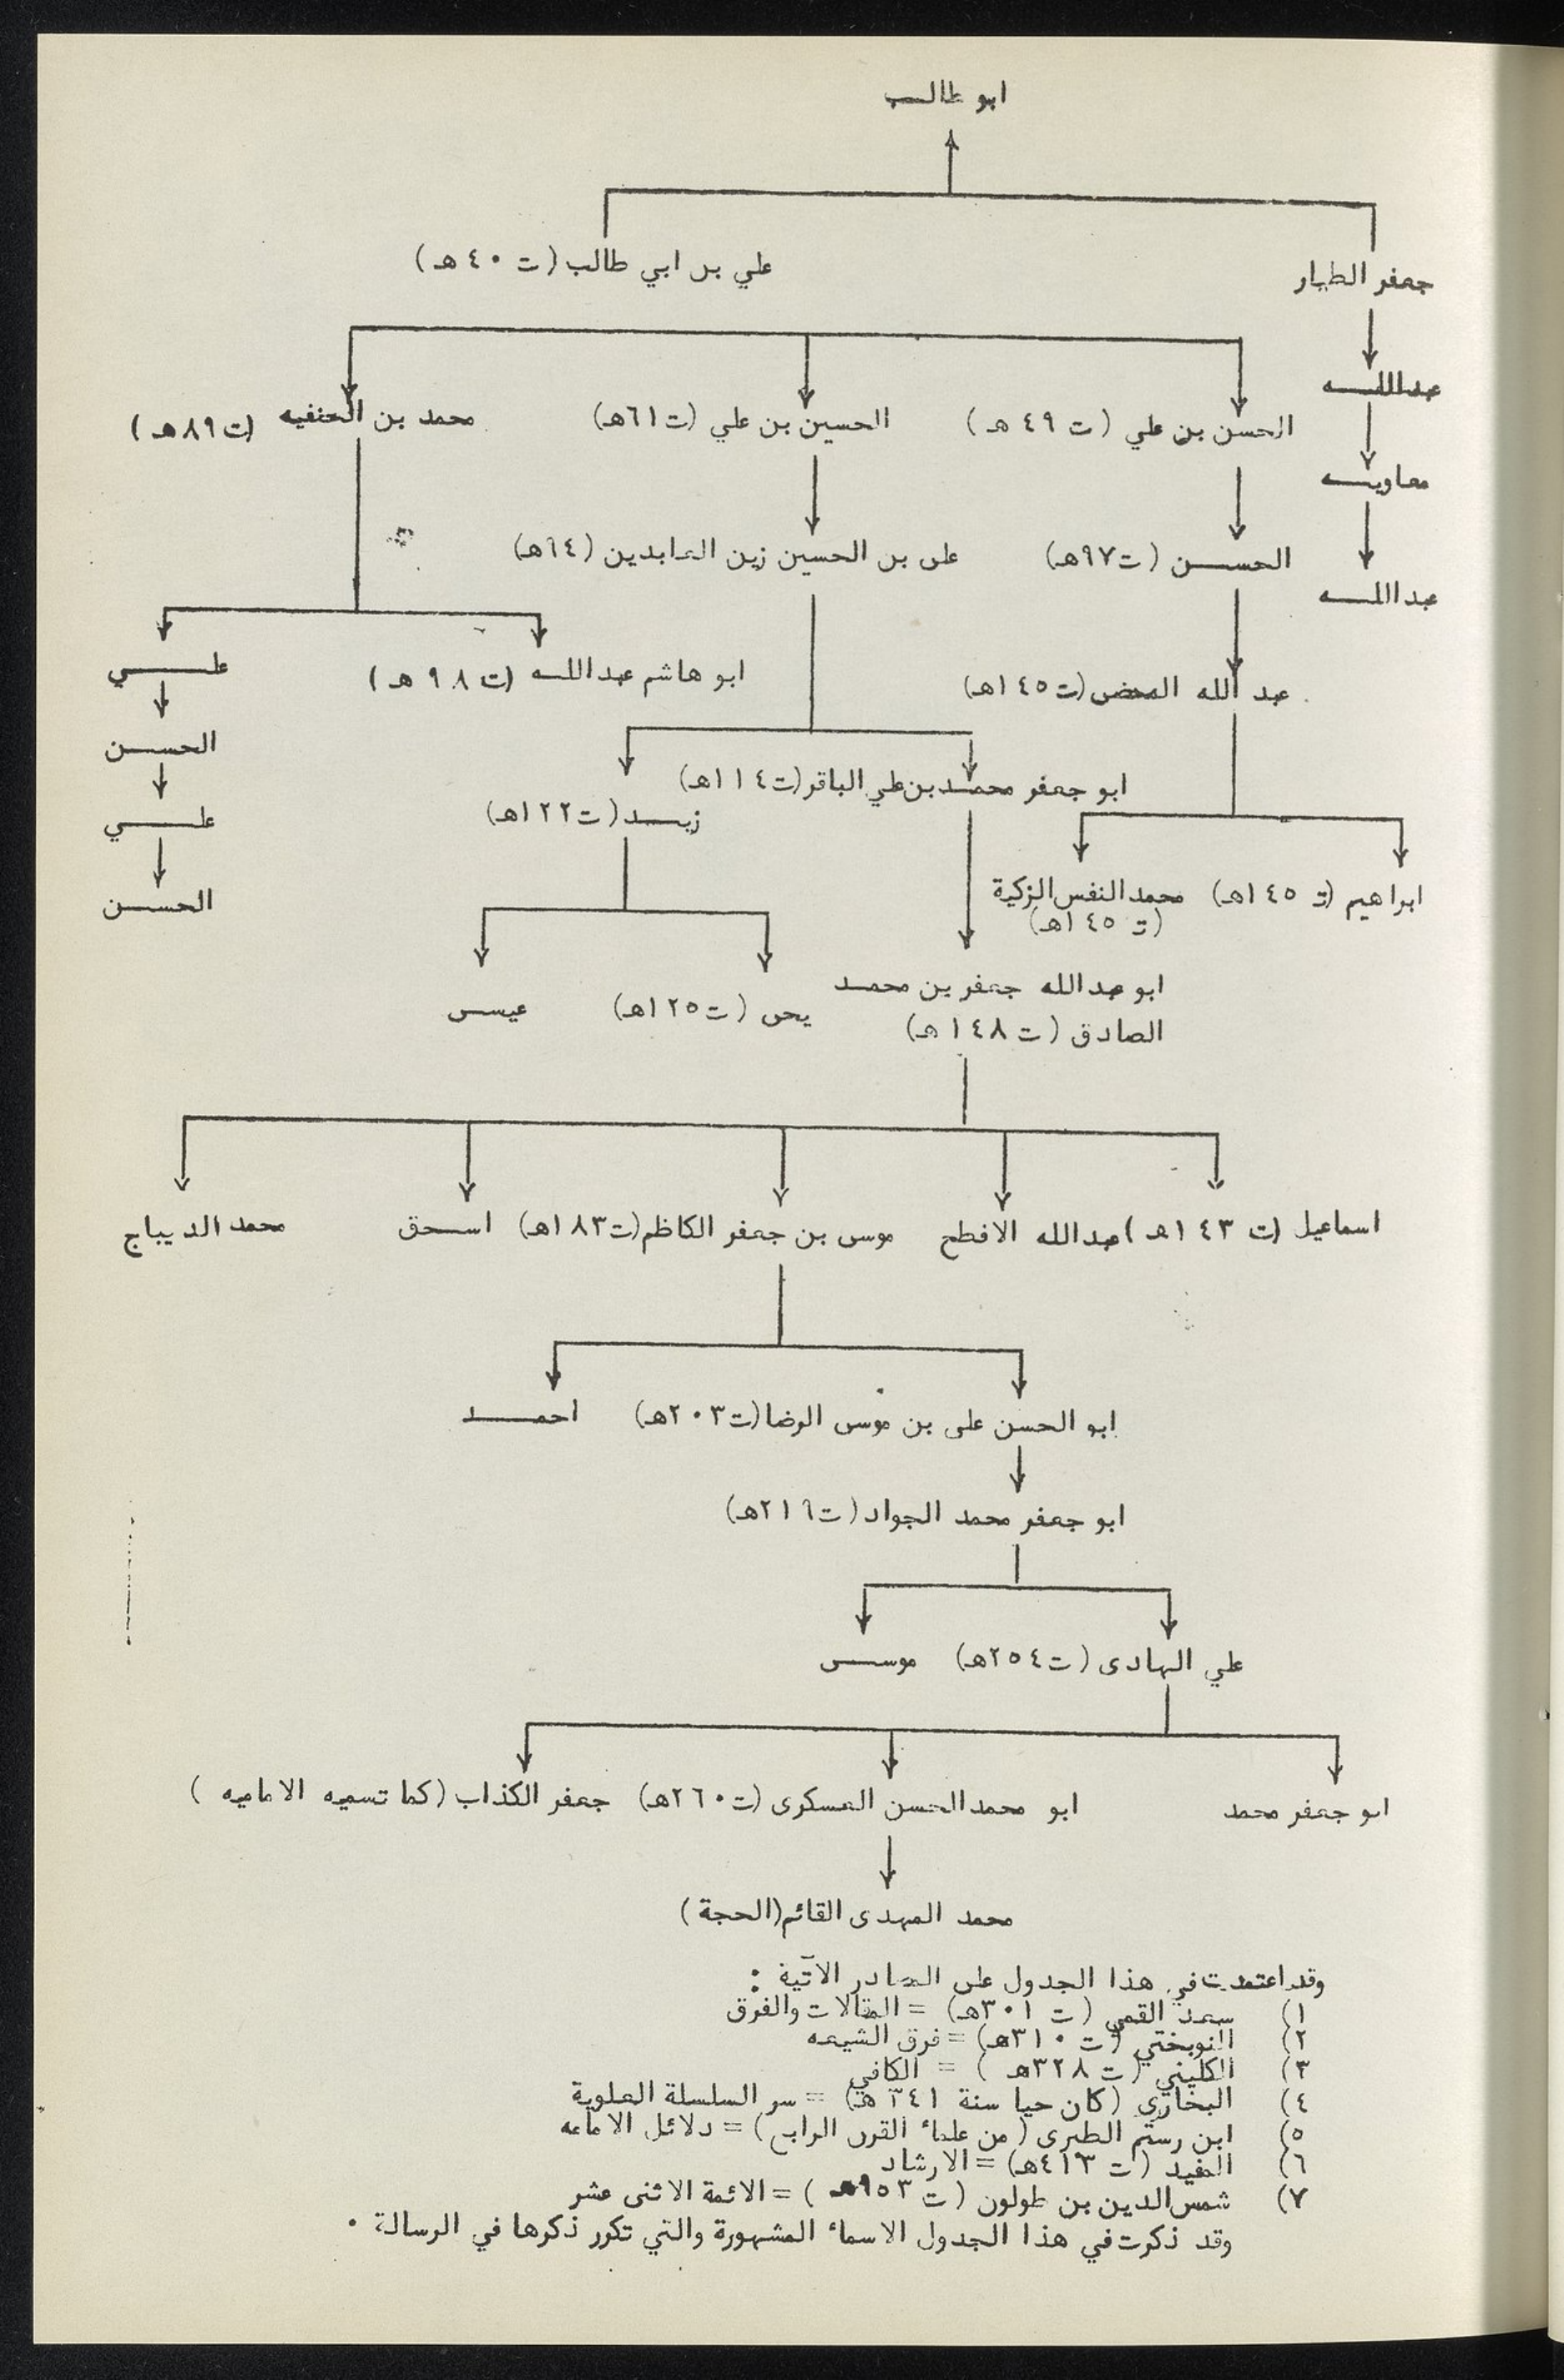 ابو طالب
علي بن ابي طالب (ت ٤٠ هـ)
جعفر الطيار
عبدالله
معاويه
عبدالله
الحسن بن علي (ت ٤٩ هـ)
الحسين بن علي (ت٦١هـ)
محمد بن الحنفيه (ت٨٩هـ)
الحسن (ت٩٧هـ)
على بن الحسين زين العابدين (٦٤هـ)
عبد الله المحض (ت١٤٥هـ)
ابو هاشم عبدالله (ت ٩٨ هـ)
علي
الحسن
علي
الحسن
ابو جعفر محمد بن علي الباقر (ت١١٤هـ)
زيد (ت١٢٢هـ)
ابراهيم (ت ١٤٥هـ)
محمد النفس الزكية
(ت ١٤٥هـ)
ابو عبدالله جعفر بن محمد
الصادق (ت ١٤٨هـ)
يحى (ت١٢٥هـ)
عيسى
اسماعيل (ت ١٤٣هـ)
عبدالله الافطح
موسى بن جعفر الكاظم (ت١٨٣هـ)
اسحق
محمد الديباج
ابو الحسن على بن موسى الرضا (ت٢٠٣هـ)
احمد
ابو جعفر محمد الجواد (ت٢١٦هـ)
علي الهادى (ت٢٥٤هـ)
موسى
ابو جعفر محمد
ابو محمد الحسن العسكرى (ت٢٦٠هـ)
جعفر الكذاب (كما تسميه الاماميه )
محمد المهدى القائم (الحجة)
وقد اعتمدت في هذا الجدول على المصادر الآتية :
١) سعد القمي (ت ٣٠١هـ) = المقالات والفرق
٢) النوبختي (ت ٣١٠هـ) = فرق الشيعه
٣) الكليني (ت ٣٢٨هـ ) = الكافي
٤) البخاري (كان حيا سنة ٣٤١ هـ) = سر السلسلة العلوية
٥) ابن رستم الطبرى (من علماء القرن الرابع) = دلائل الامامه
٦) المفيد (ت ٤١٣هـ) = الارشاد
٧) شمس الدين بن طولون (ت ٩٥٣هـ ) = الائمة الاثنى عشر
وقد ذكرت في هذا الجدول الاسماء المشهورة والتي تكرر ذكرها في الرسالة .